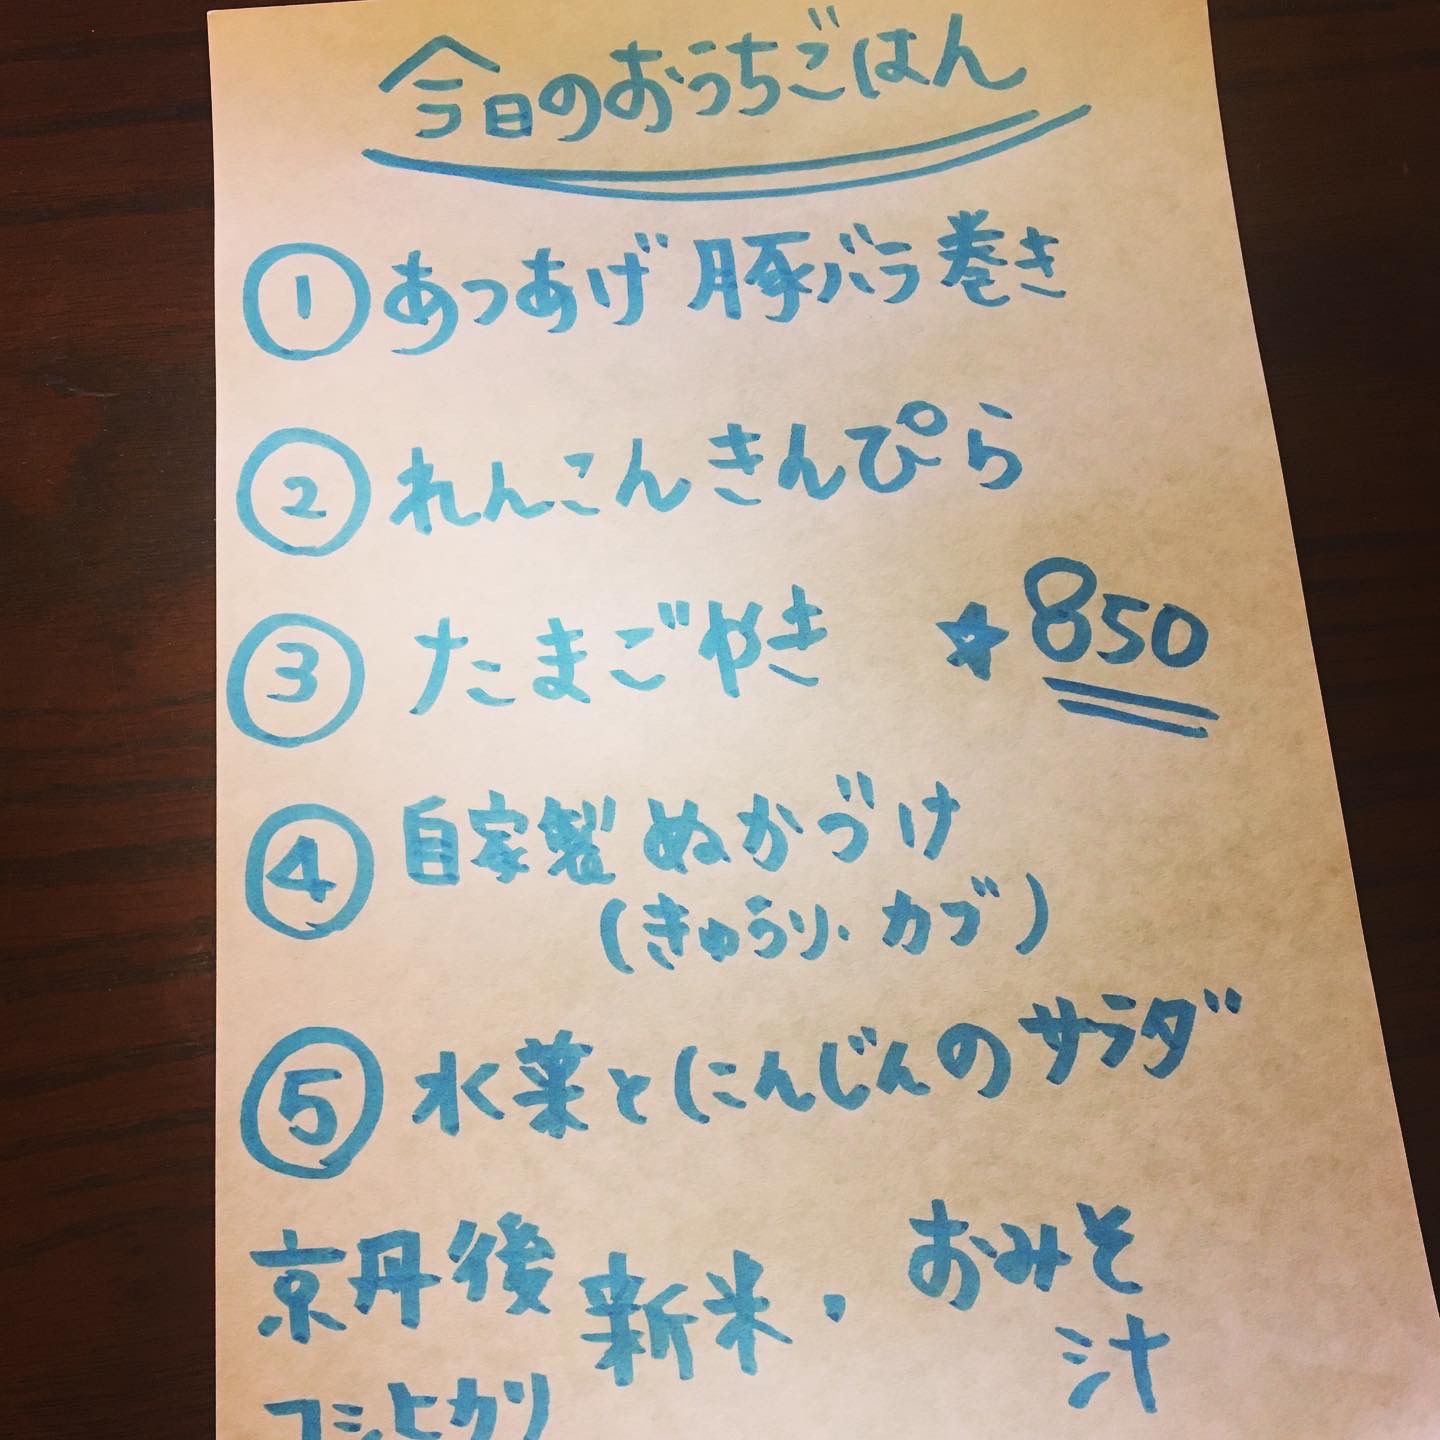 今日のおうちごはん
① あつあげ 豚バラ巻き
② れんこんきんぴら
③ たまごやき ★850
④ 自家製 ぬかづけ
(きゅうり・カブ)
⑤ 水菜とにんじんのサラダ
京丹後 新米、おみそ
コシヒカリ 汁